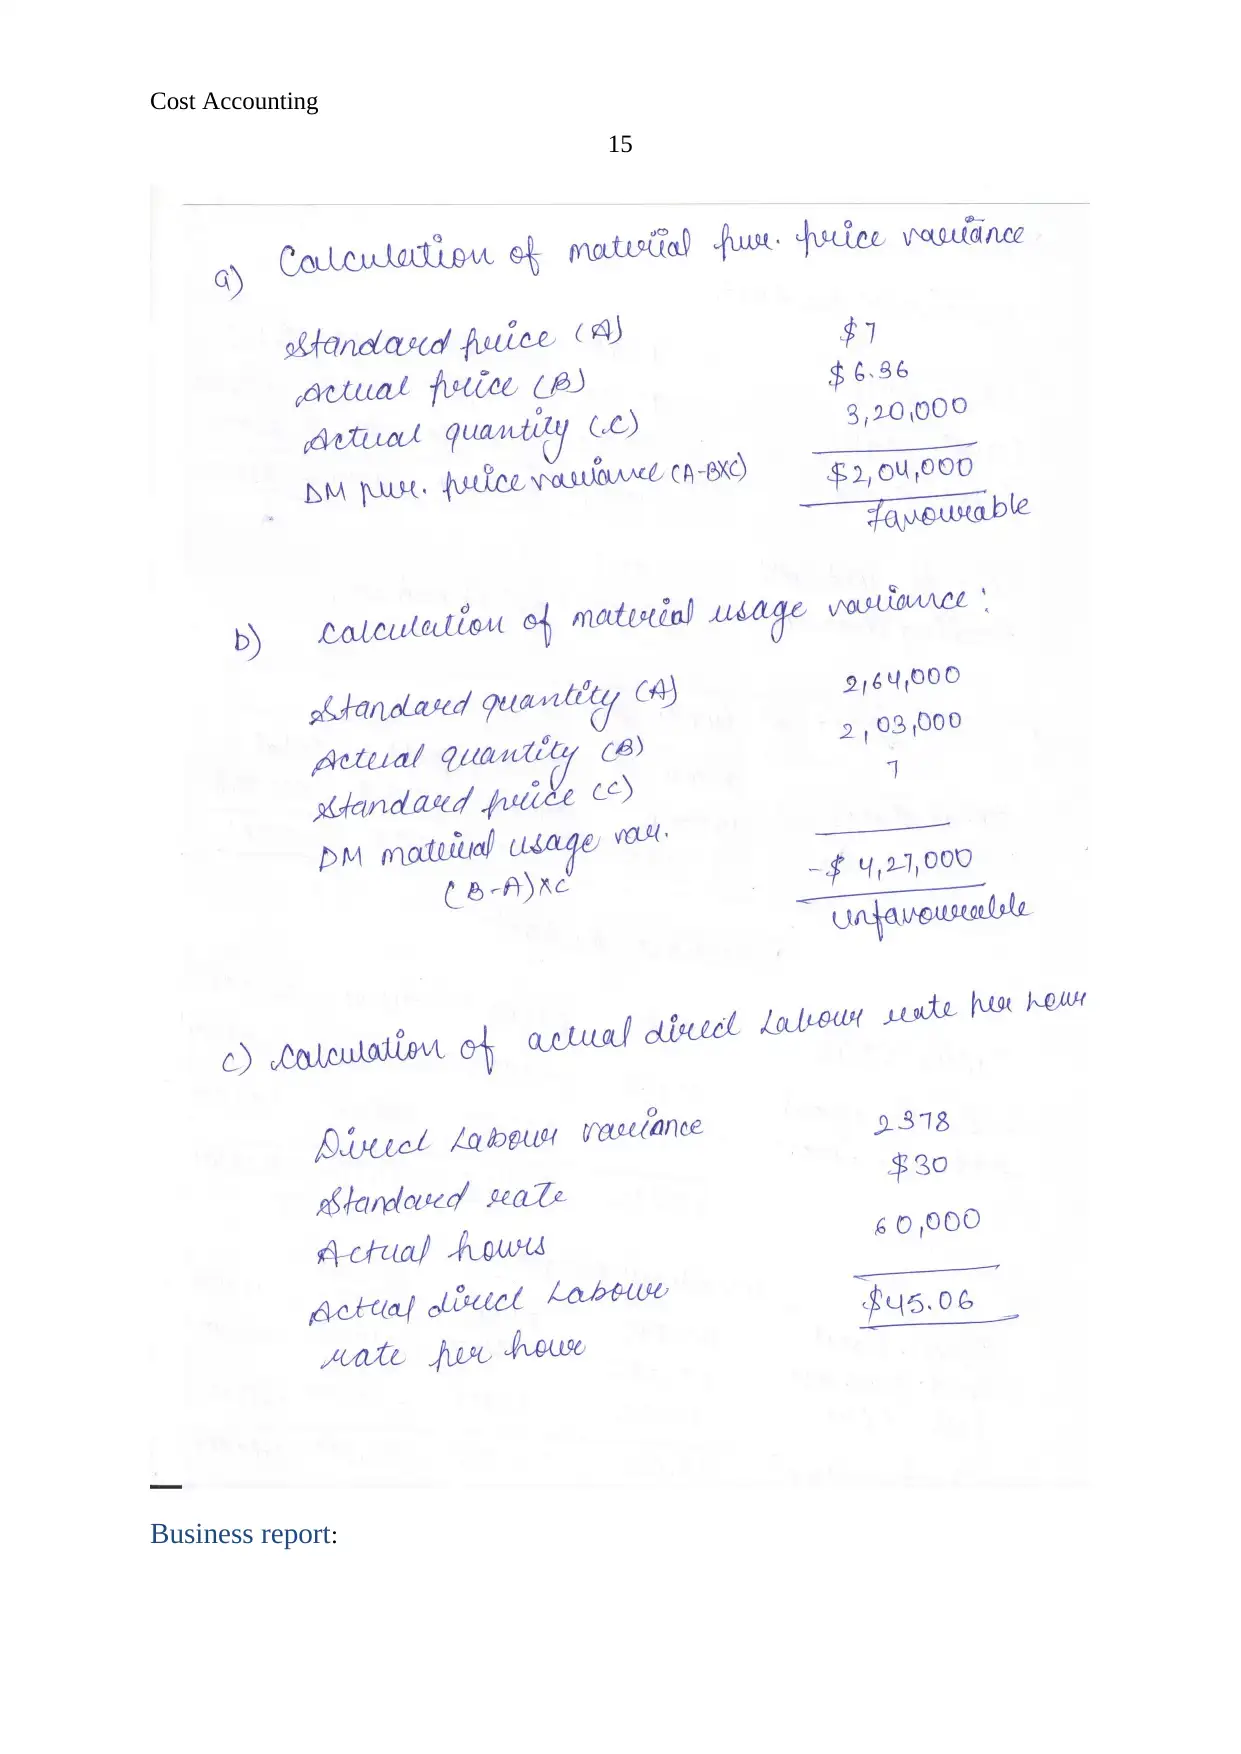 Cost Accounting
15
a) Calculation of material pur. price variance
Standard price (A) $7
Actual price (B) $6.36
Actual quantity (C) 3,20,000
DM pur. price variance (A-BXC) $2,04,000
Favourable
b) Calculation of material usage variance:
Standard quantity (A) 2,64,000
Actual quantity (B) 2,03,000
Standard price (C) 7
DM material usage var.
(B-A)XC -$ 4,27,000
unfavourable
c) Calculation of actual direct Labour rate per hour
Direct Labour variance 2378
Standard rate $30
Actual hours 60,000
Actual direct Labour $45.06
rate per hour
Business report: